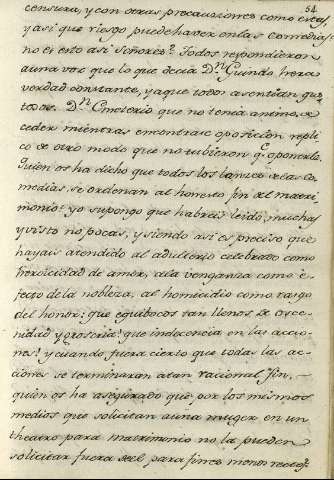 54
censura, y con otras precauciones como creer,
y asi que riesgo puede haver en las comedias?
no es esto asi Señores? Todos respondieron
a una voz que lo que decia Dn. Guindo hera
verdad constante, y a que todos asentian gus
tosos. Dn. Emeterio que no tenia animo de
ceder mientras encontrase oposicion repli
có de otro modo que no tubieron qe. oponerle.
Quien os ha dicho que todos los lances de las Co
medias, se ordenan al honesto fin del matri
monio? yo supongo que habreis leido, muchas
y visto no pocas, y siendo asi es preciso que
hayais atendido al adulterio celebrado como
heroicidad de amor, a la venganza como e-
fecto de la nobleza, al homicidio como rasgo
del honor: que equibocos tan llenos de obsce-
nidad y groseria! que indecencia en las accio-
nes! y cuando fuera cierto que todas las ac-
ciones se terminaran a tan racional fin,
quien os ha asegurado que por los mismos
medios que solicitan a una muger en un
theatro para matrimonio no la pueden
solicitar fuera de el para fines menos rectos?